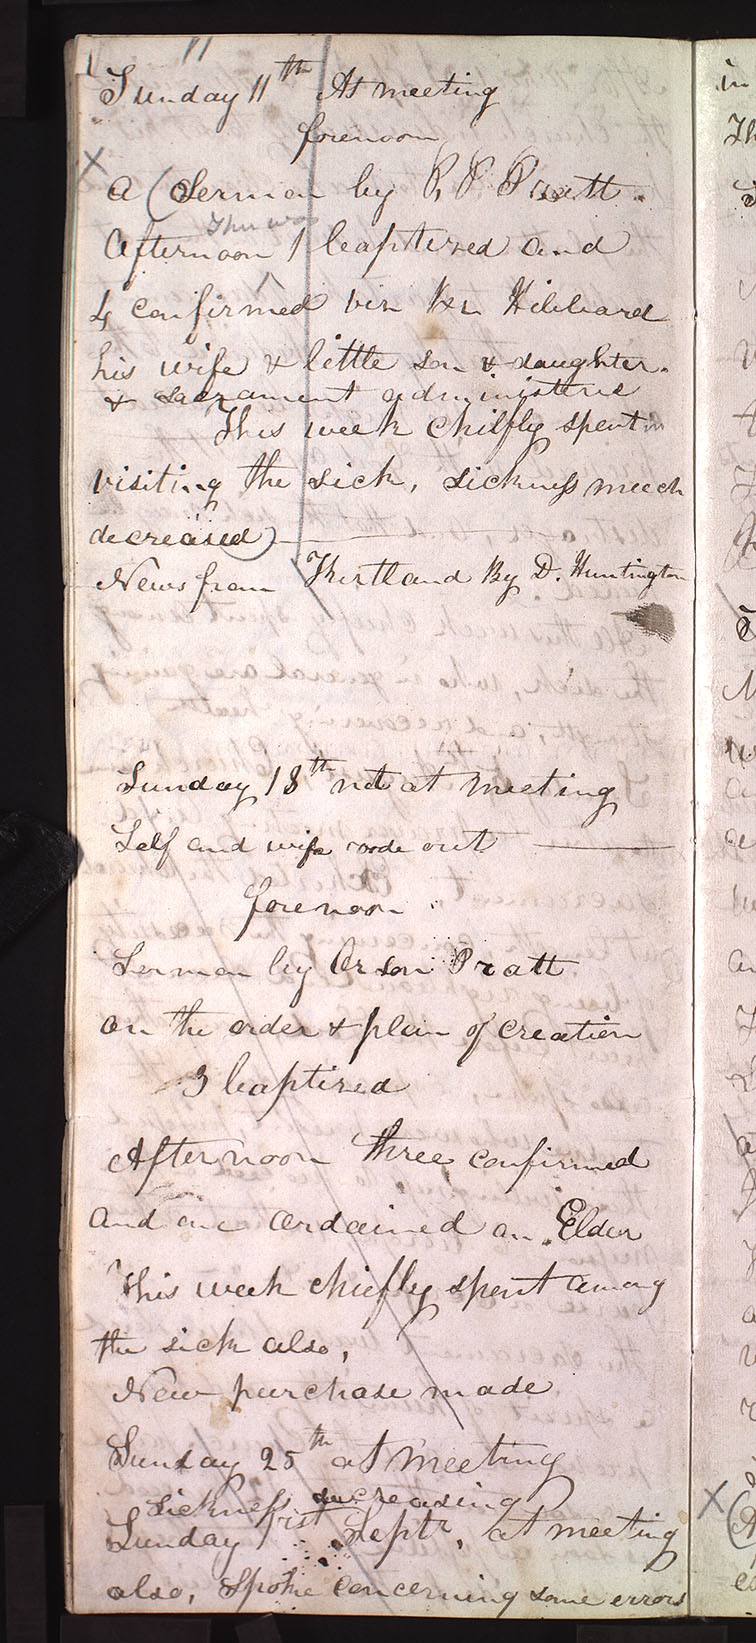 11
Sunday 11th At meeting
forenoon
X
a (Sermon by P. P. Pratt.
There was
Afternoon 1 baptized and
4 confirmed viz Br. Hibbard
his wife & little son & daughter.
& sacrament administered
This week chilfly spent in
visiting the sick, sickness much
decreased)
News from Kirtland By D. Huntington
Sunday 18th not at meeting
Self and wife rode out
forenoon
Sermon by Orson Pratt
on the order & plan of creation
3 baptized
Afternoon three confirmed
and one ordained an Elder
This week chiefly spent among
the sick also,
New purchase made
Sunday 25th at Meeting
Sickness decreasing
Sunday 1st Septr, at meeting
also, Spoke concerning some errors